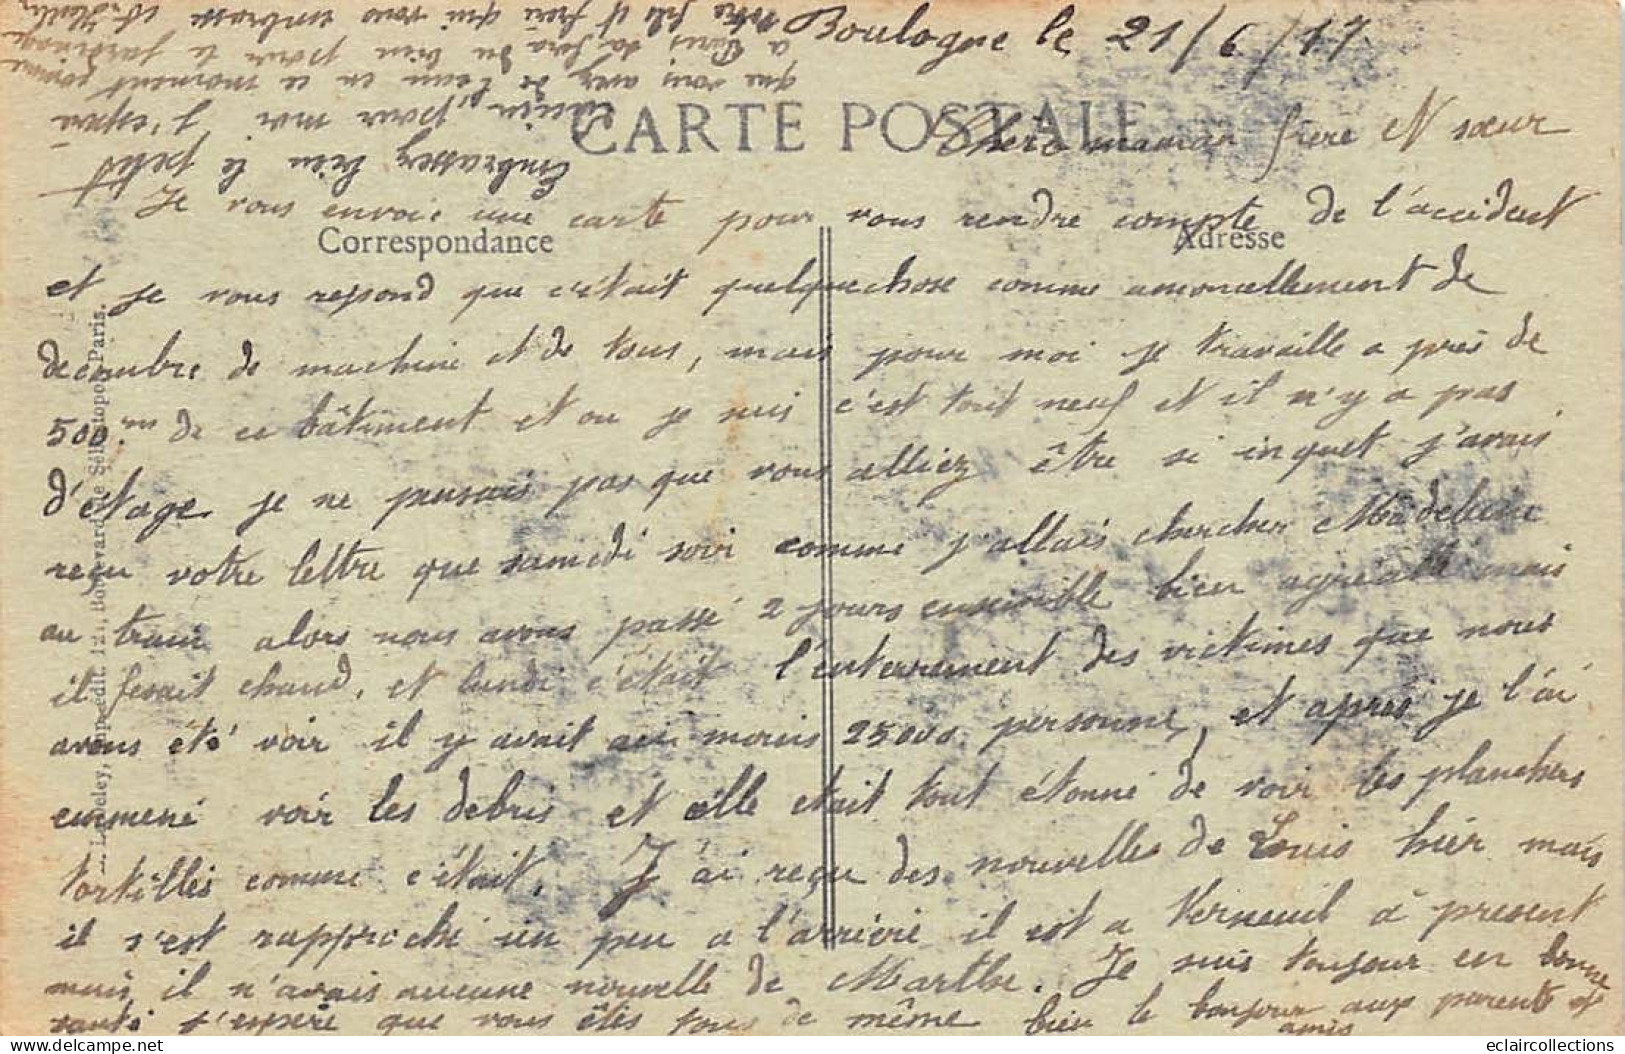 Boulogne le 21/6/17
CARTE POSTALE
Chere maman frere et sœur
Je vous envoie une carte pour vous rendre compte de l'accident
Correspondance
Adresse
et je vous repond que c'était quelquechose comme amoncellement de
decombre de machine et de tous, mais pour moi je travaille a près de
500m de ce bâtiment et ou je suis c'est tout neuf et il n'y a pas
d'étage. je ne pensais pas que vous alliez être si inquet j'avais
reçu votre lettre que samedi soir comme j'allais chercher Madeleine
au train alors nous avons passé 2 jours ensemble bien agreable mais
il fesait chaud, et lundi c'était l'enterrement des victimes que nous
avons été voir il y avait au moins 25000 personne, et après je l'ai
emmené voir les debris et elle etait tout étonné de voir les planchers
tortillés comme c'était. J'ai reçu des nouvelles de Louis hier mais
il s'est rapproché un peu a l'arrière il est a Verneuil à present
mais il n'avais aucune nouvelle de Marthe. Je suis toujour en bonne
santé j'espère que vous êtes tous de même bien le bonjour aux parents et
amis
Embrassez bien le petit
Lucien, pour moi j'espère
que vous avez de l'eau en ce moment comme
a Paris sa fera du bien pour le jardinage
votre fils et frere qui vous embrasse
Imp. édit. 121, Boulevard de Sébastopol, Paris.